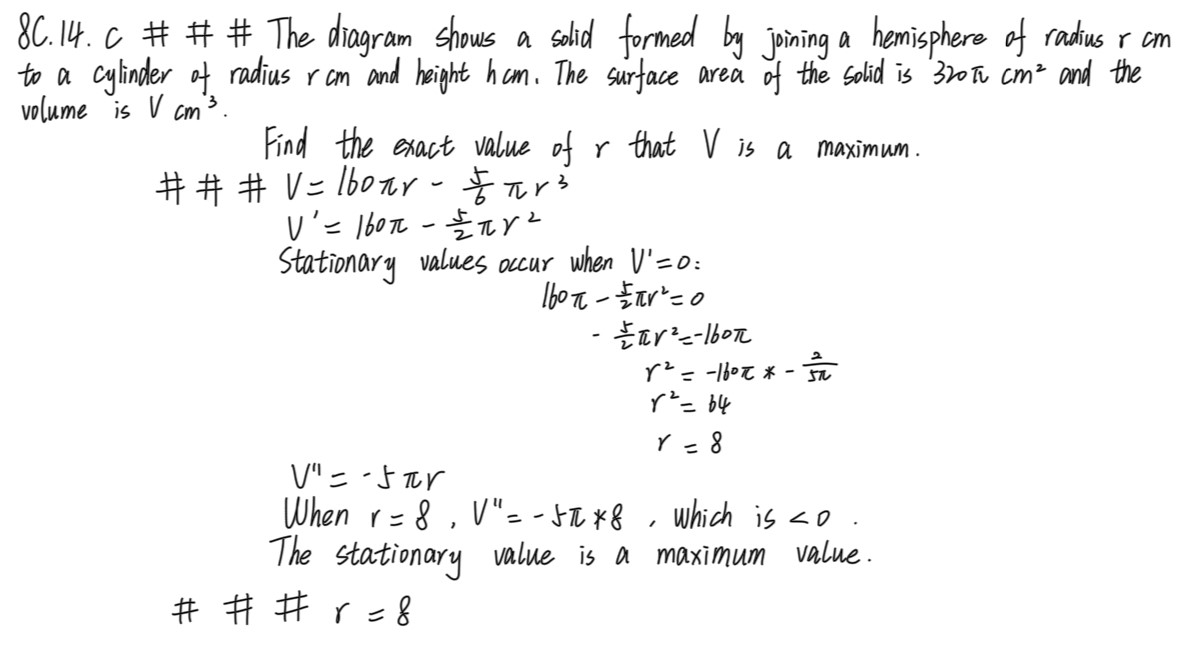 8C.14. C # # # The diagram shows a solid formed by joining a hemisphere of radius r cm
to a cylinder of radius r cm and height h cm. The surface area of the solid is 320π cm² and the
volume is V cm³.
Find the exact value of r that V is a maximum.
# # # V = 160πr - 5/6 πr³
V' = 160π - 5/2 πr²
Stationary values occur when V'=0:
160π - 5/2 πr² = 0
- 5/2 πr² = -160π
r² = -160π * - 2/5π
r² = 64
r = 8
V'' = -5πr
When r = 8, V'' = -5π * 8, which is < 0.
The stationary value is a maximum value.
# # # r = 8